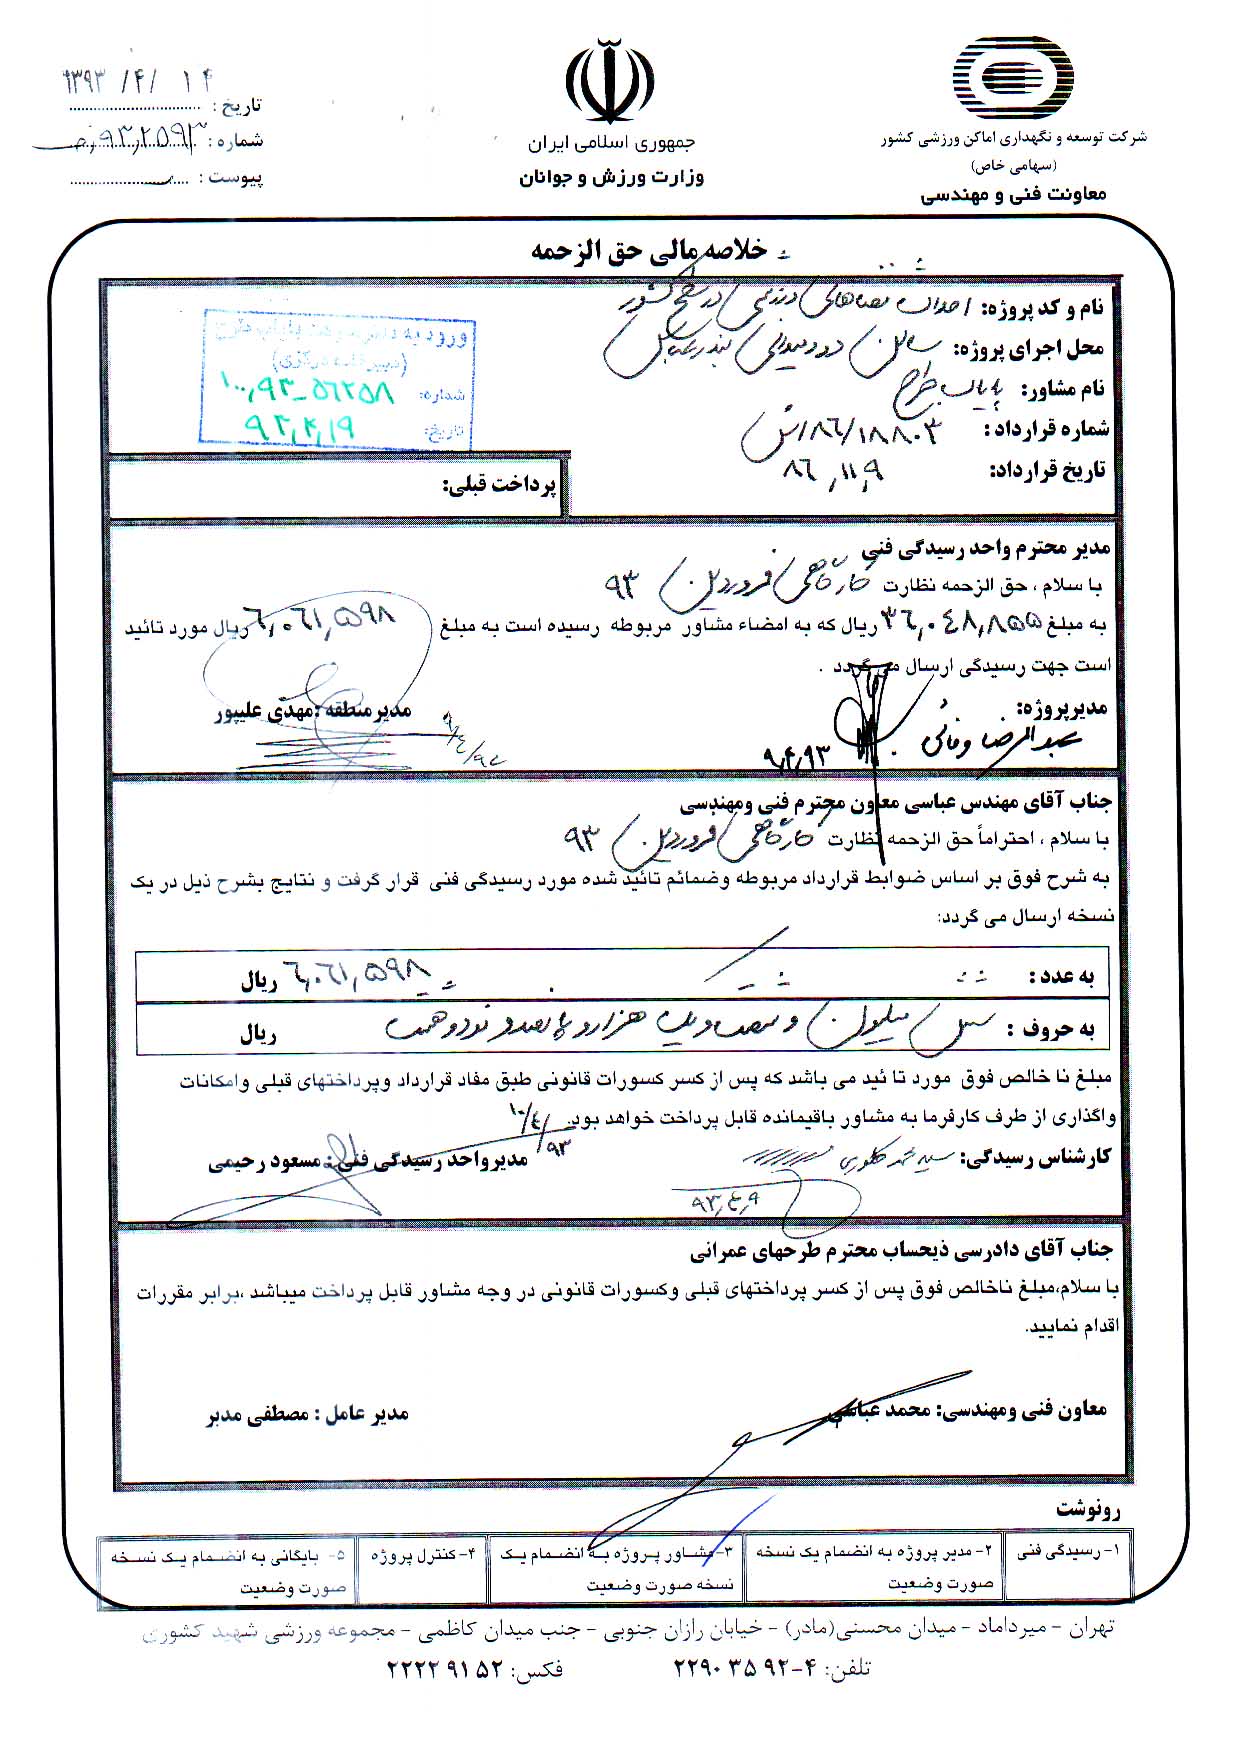 شرکت توسعه و نگهداری اماکن ورزشی کشور
(سهامی خاص)
معاونت فنی و مهندسی
جمهوری اسلامی ایران
وزارت ورزش و جوانان
تاریخ : ۱۳۹۳/۴/۱۴
شماره : ۹۳،۲۵۹۳
پیوست :
خلاصه مالی حق الزحمه
نام و کد پروژه: احداث فضاهای ورزشی در سطح کشور
محل اجرای پروژه: سالن دو و میدانی بندرعباس
نام مشاور: پایاب طرح
شماره قرارداد : ۸۶/۱۸۸۰۳/ش
تاریخ قرارداد: ۸۶،۱۱،۹
(دبیرخانه مرکزی)
شماره: ۱۰۰،۹۳-۵۶۲۵۸
تاریخ: ۹۳،۴،۱۹
پرداخت قبلی:
مدیر محترم واحد رسیدگی فنی
با سلام ، حق الزحمه نظارت کارگاهی فروردین ۹۳
به مبلغ ۳۶،۰۴۸،۸۵۵ ریال که به امضاء مشاور مربوطه رسیده است به مبلغ ۶،۰۶۱،۵۹۸ ریال مورد تائید
است جهت رسیدگی ارسال می گردد .
مدیرپروژه: عبدالرضا وفائی
۹،۴،۹۳
مدیرمنطقه :مهدی علیپور
جناب آقای مهندس عباسی معاون محترم فنی ومهندسی
با سلام ، احتراماً حق الزحمه نظارت کارگاهی فروردین ۹۳
به شرح فوق بر اساس ضوابط قرارداد مربوطه وضمائم تائید شده مورد رسیدگی فنی قرار گرفت و نتایج بشرح ذیل در یک
نسخه ارسال می گردد:
به عدد : ۶،۰۶۱،۵۹۸ ریال
به حروف : شش میلیون و شصت و یک هزار و پانصد و نود و هشت ریال
مبلغ نا خالص فوق مورد تا ئید می باشد که پس از کسر کسورات قانونی طبق مفاد قرارداد وپرداختهای قبلی وامکانات
واگذاری از طرف کارفرما به مشاور باقیمانده قابل پرداخت خواهد بود.
کارشناس رسیدگی: سید محمد
۹۳،۴،۹
مدیرواحد رسیدگی فنی : مسعود رحیمی
۹۳/۴/۱۰
جناب آقای دادرسی ذیحساب محترم طرحهای عمرانی
با سلام،مبلغ ناخالص فوق پس از کسر پرداختهای قبلی وکسورات قانونی در وجه مشاور قابل پرداخت میباشد ،برابر مقررات
اقدام نمایید.
معاون فنی ومهندسی: محمد عباسی
مدیر عامل : مصطفی مدبر
رونوشت
۱- رسیدگی فنی
۲- مدیر پروژه به انضمام یک نسخه
صورت وضعیت
۳-مشاور پروژه به انضمام یک
نسخه صورت وضعیت
۴-کنترل پروژه
۵- بایگانی به انضمام یک نسخه
صورت وضعیت
تهران - میرداماد - میدان محسنی(مادر) - خیابان رازان جنوبی - جنب میدان کاظمی - مجموعه ورزشی شهید کشوری
تلفن: ۴-۲۲۹۰۳۵۹۲ فکس: ۲۲۲۲۹۱۵۲